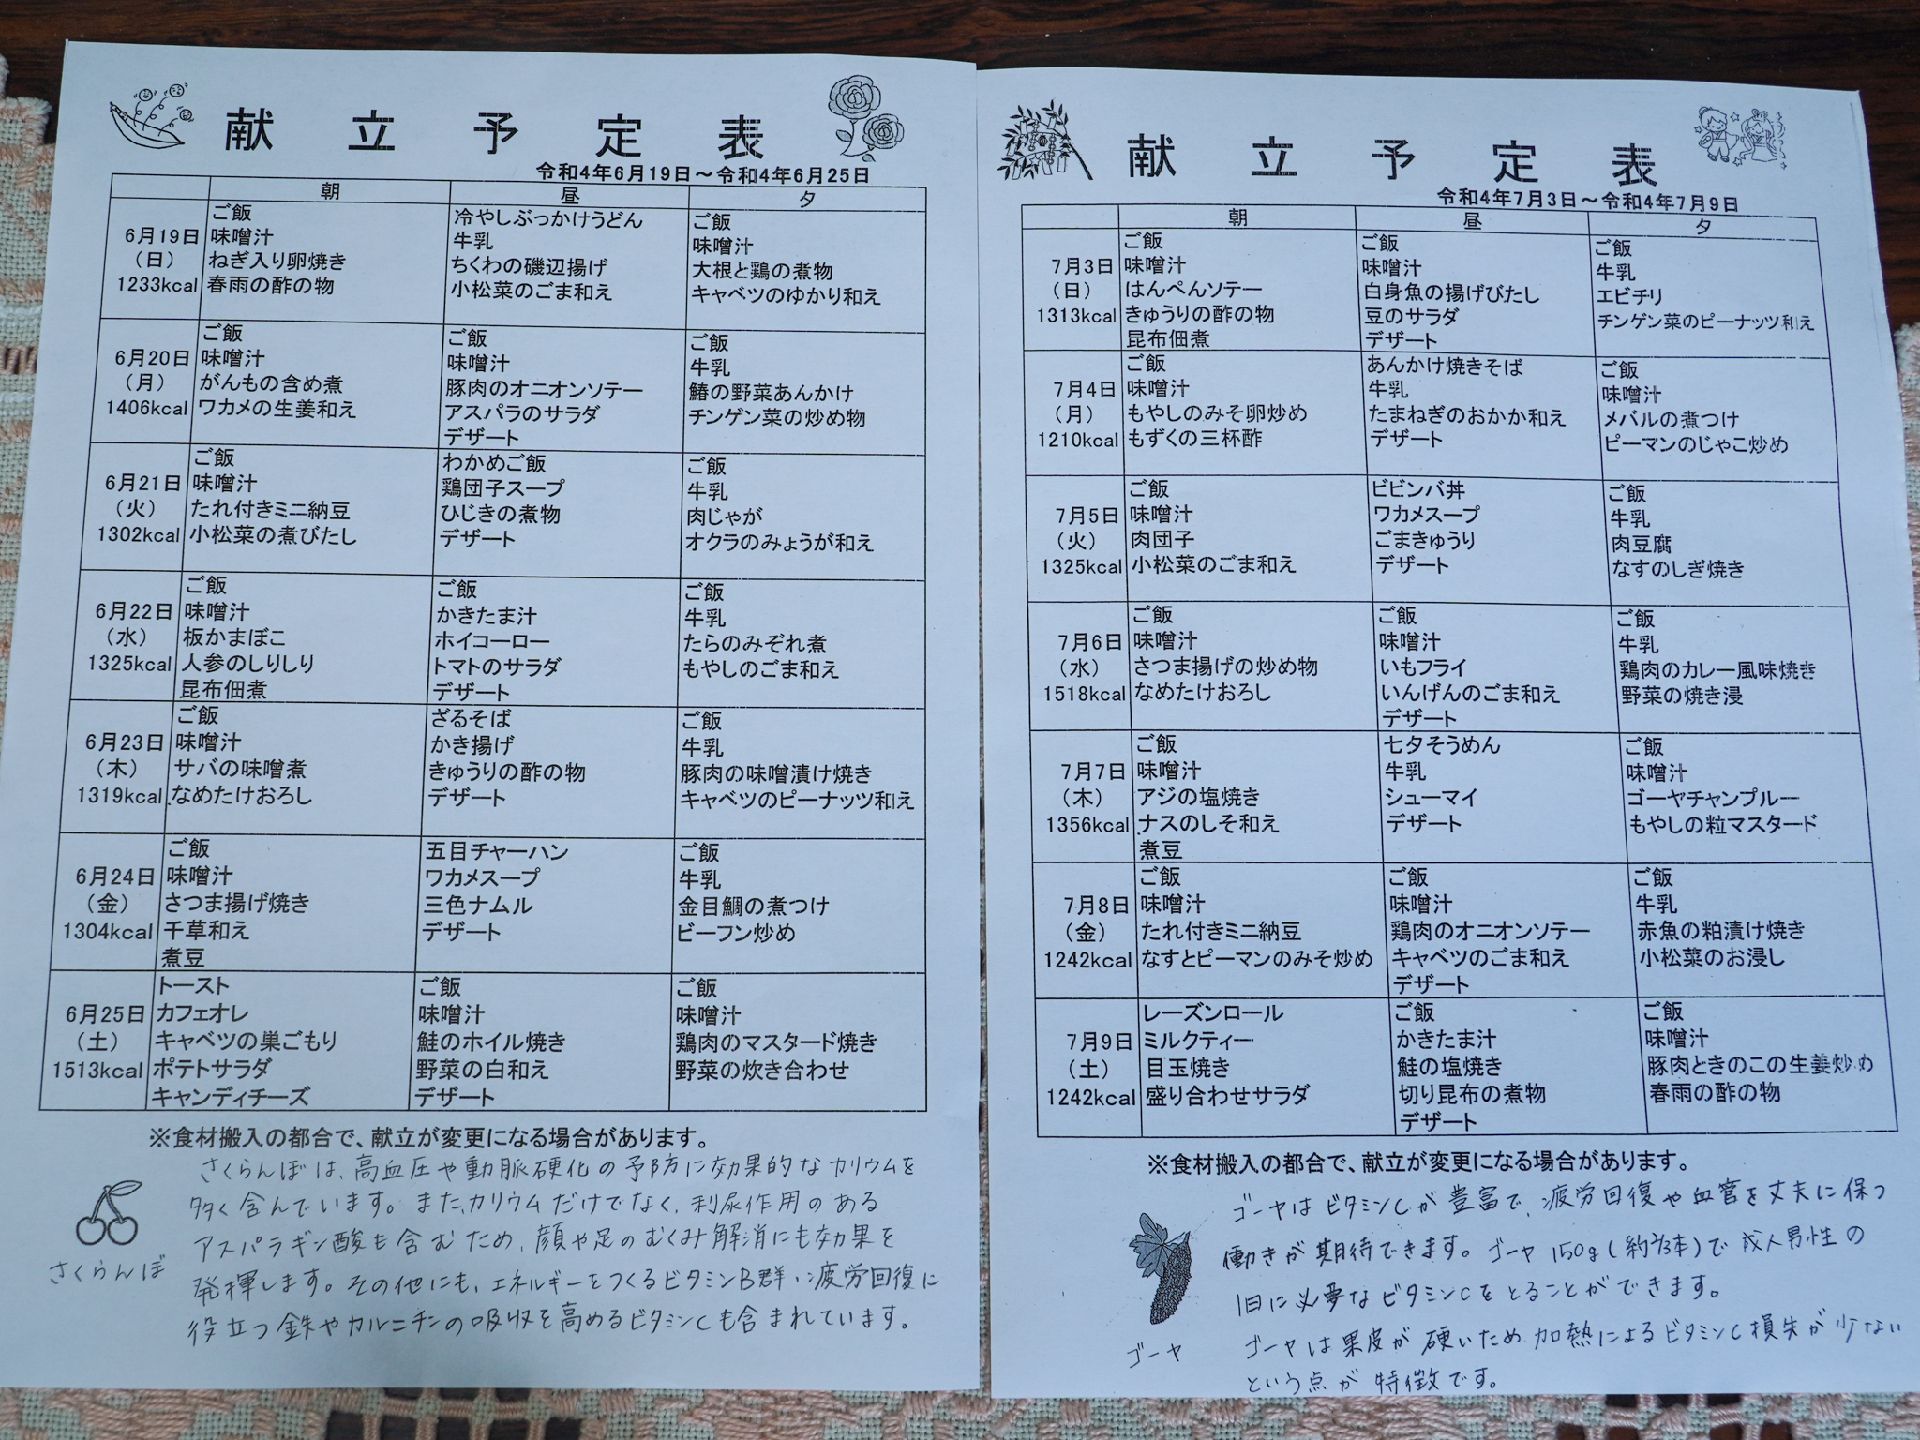 献立予定表
令和4年6月19日～令和4年6月25日
朝 昼 夕
6月19日
（日）
1233kcal
ご飯
味噌汁
ねぎ入り卵焼き
春雨の酢の物
冷やしぶっかけうどん
牛乳
ちくわの磯辺揚げ
小松菜のごま和え
ご飯
味噌汁
大根と鶏の煮物
キャベツのゆかり和え
6月20日
（月）
1406kcal
ご飯
味噌汁
がんもの含め煮
ワカメの生姜和え
ご飯
味噌汁
豚肉のオニオンソテー
アスパラのサラダ
デザート
ご飯
牛乳
鰆の野菜あんかけ
チンゲン菜の炒め物
6月21日
（火）
1302kcal
ご飯
味噌汁
たれ付きミニ納豆
小松菜の煮びたし
わかめご飯
鶏団子スープ
ひじきの煮物
デザート
ご飯
牛乳
肉じゃが
オクラのみょうが和え
6月22日
（水）
1325kcal
ご飯
味噌汁
板かまぼこ
人参のしりしり
昆布佃煮
ご飯
かきたま汁
ホイコーロー
トマトのサラダ
デザート
ご飯
牛乳
たらのみぞれ煮
もやしのごま和え
6月23日
（木）
1319kcal
ご飯
味噌汁
サバの味噌煮
なめたけおろし
ざるそば
かき揚げ
きゅうりの酢の物
デザート
ご飯
牛乳
豚肉の味噌漬け焼き
キャベツのピーナッツ和え
6月24日
（金）
1304kcal
ご飯
味噌汁
さつま揚げ焼き
千草和え
煮豆
五目チャーハン
ワカメスープ
三色ナムル
デザート
ご飯
牛乳
金目鯛の煮つけ
ビーフン炒め
6月25日
（土）
1513kcal
トースト
カフェオレ
キャベツの巣ごもり
ポテトサラダ
キャンディチーズ
ご飯
味噌汁
鮭のホイル焼き
野菜の白和え
デザート
ご飯
味噌汁
鶏肉のマスタード焼き
野菜の炊き合わせ
※食材搬入の都合で、献立が変更になる場合があります。
さくらんぼは、高血圧や動脈硬化の予防に効果的なカリウムを
多く含んでいます。また、カリウムだけでなく、利尿作用のある
アスパラギン酸も含むため、顔や足のむくみ解消にも効果を
発揮します。その他にも、エネルギーをつくるビタミンB群、疲労回復に
役立つ鉄やカルニチンの吸収を高めるビタミンCも含まれています。
さくらんぼ
献立予定表
令和4年7月3日～令和4年7月9日
朝 昼 夕
7月3日
（日）
1313kcal
ご飯
味噌汁
はんぺんソテー
きゅうりの酢の物
昆布佃煮
ご飯
味噌汁
白身魚の揚げびたし
豆のサラダ
デザート
ご飯
牛乳
エビチリ
チンゲン菜のピーナッツ和え
7月4日
（月）
1210kcal
ご飯
味噌汁
もやしのみそ卵炒め
もずくの三杯酢
あんかけ焼きそば
牛乳
たまねぎのおかか和え
デザート
ご飯
味噌汁
メバルの煮つけ
ピーマンのじゃこ炒め
7月5日
（火）
1325kcal
ご飯
味噌汁
肉団子
小松菜のごま和え
ビビンバ丼
ワカメスープ
ごまきゅうり
デザート
ご飯
牛乳
肉豆腐
なすのしぎ焼き
7月6日
（水）
1518kcal
ご飯
味噌汁
さつま揚げの炒め物
なめたけおろし
ご飯
味噌汁
いもフライ
いんげんのごま和え
デザート
ご飯
牛乳
鶏肉のカレー風味焼き
野菜の焼き浸
7月7日
（木）
1356kcal
ご飯
味噌汁
アジの塩焼き
ナスのしそ和え
煮豆
七夕そうめん
牛乳
シューマイ
デザート
ご飯
味噌汁
ゴーヤチャンプルー
もやしの粒マスタード
7月8日
（金）
1242kcal
ご飯
味噌汁
たれ付きミニ納豆
なすとピーマンのみそ炒め
ご飯
味噌汁
鶏肉のオニオンソテー
キャベツのごま和え
デザート
ご飯
牛乳
赤魚の粕漬け焼き
小松菜のお浸し
7月9日
（土）
1242kcal
レーズンロール
ミルクティー
目玉焼き
盛り合わせサラダ
ご飯
かきたま汁
鮭の塩焼き
切り昆布の煮物
デザート
ご飯
味噌汁
豚肉ときのこの生姜炒め
春雨の酢の物
※食材搬入の都合で、献立が変更になる場合があります。
ゴーヤはビタミンCが豊富で、疲労回復や血管を丈夫に保つ
働きが期待できます。ゴーヤ150g(約2/3本)で成人男性の
1日に必要なビタミンCをとることができます。
ゴーヤは果皮が硬いため加熱によるビタミンC損失が少ない
という点が特徴です。
ゴーヤ